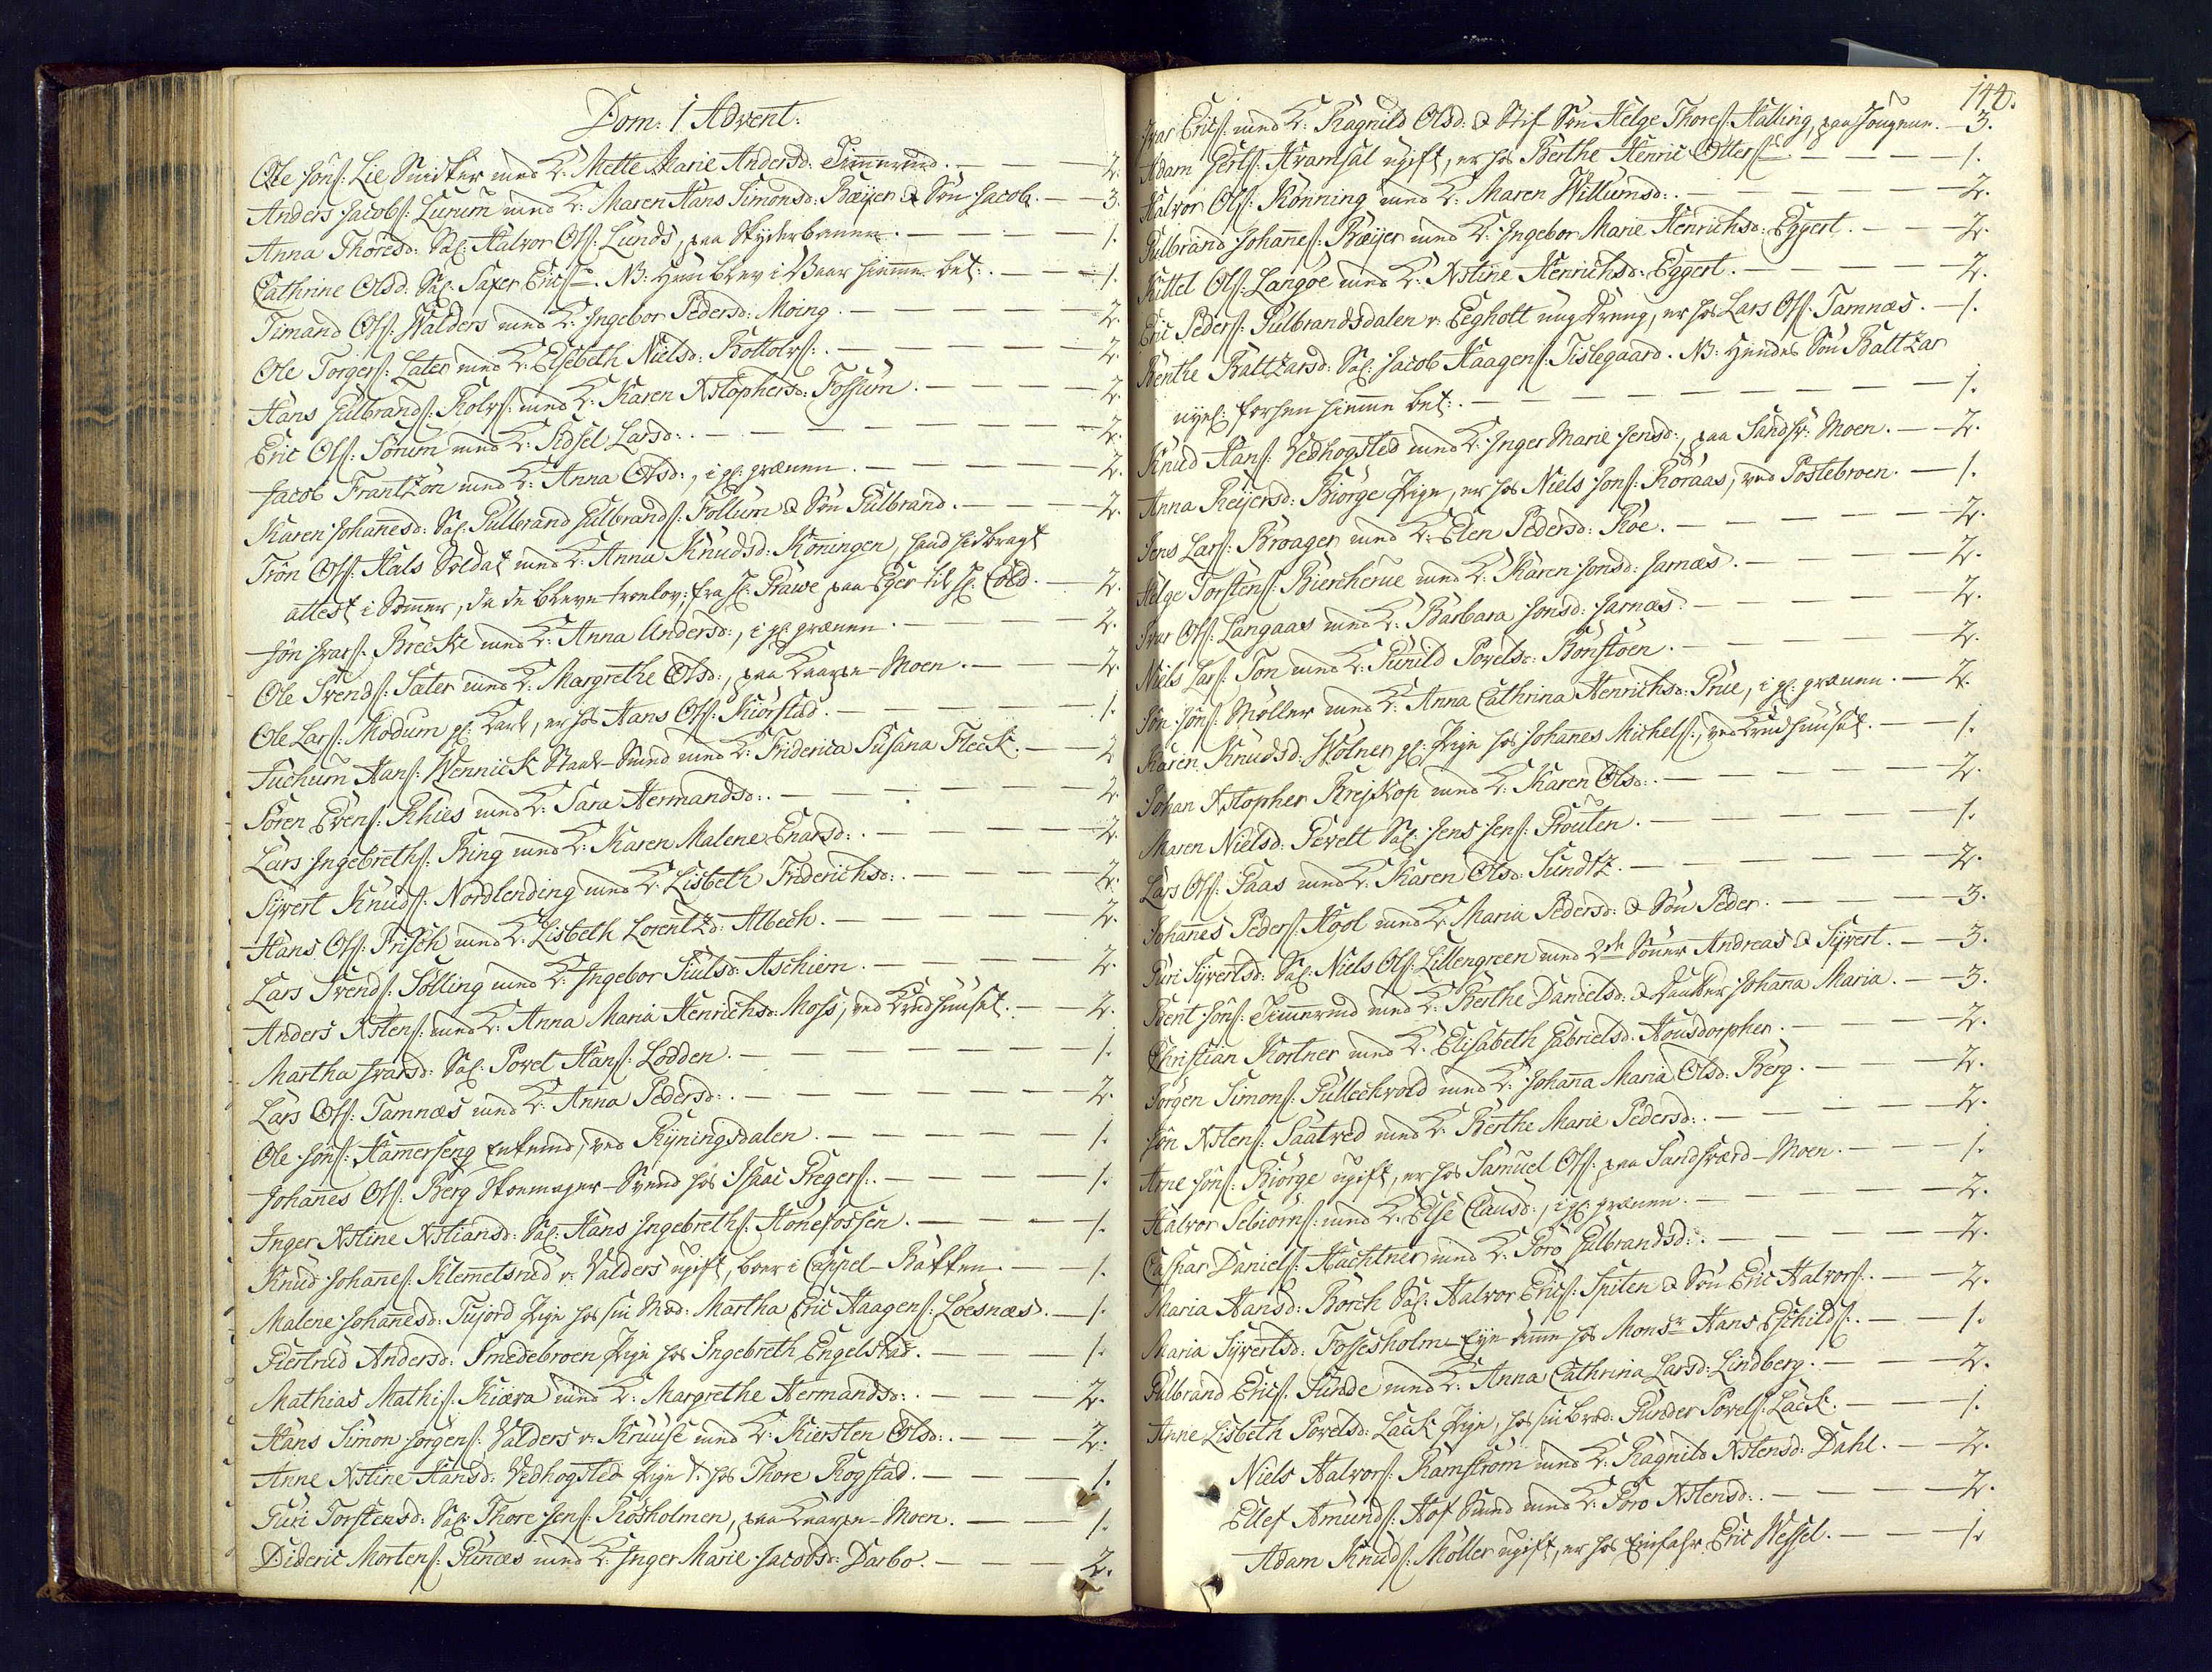 Dom: 1 Advent.
Ole Jöns: Lie Snidker med K: Mette Marie Andersd: Timmerud. — 2.
Anders Jacobs: Lurum med K: Maren Hans Simonsd: Bæijer & Sön Jacob. — 3.
Anna Thoresd: Sal: Halvor Ols: Lunds, paa Skyderbanen. — 1.
Cathrine Olsd: Sal: Saxer Erics: NB: Hun blev i Vaar hiemme bet: — 1.
Timand Ols: Walders med K: Ingebor Pedersd: Moing. — 2.
Ole Torgers: Later med K: Elsebeth Nielsd: Bottolvs: — 2.
Hans Gulbrands: Rolvs: med K: Karen Xstophersd: Fossum. — 2.
Eric Ols: Sørum med K: Sidsel Larsd: — 2.
Jacob Frantzön med K: Anna Olsd:, i gl: grænen. — 2.
Karen Johannesd: Sal: Gulbrand Gulbrands: Follum & Sön Gulbrand. — 2.
Trön Ols: Hals Soldat med K: Anna Knudsd: Köningen, hand hidbragt
attest i Sommer, da de bleve trolov: fra Hr: Prawe paa Eger til Hr: Cold. — 2.
Jön Ivars: Brecke med K: Anna Andersd:, i gl: grænen. — 2.
Ole Svends: Sæter med K: Margrethe Olsd:, paa Kaarpe-Moen. — 2.
Ole Lars: Modum gl: Karl, er hos Hans Ols: Kiörstad. — 1.
Tuchum Hans: Wennick Staal-Smed med K: Friderica Susana Fleck. — 2
Sören Evens: Rhies med K: Sara Hermandsd: — 2.
Lars Ingebreths: Ring med K: Karen Malene Enarsd: — 2.
Syvert Knuds: Nordlending med K: Lisbeth Friderichsd: — 2.
Hans Ols: Frisch med K: Lisbeth Lorentzd: Albech. — 2.
Lars Svends: Sölling med K: Ingebor Siulsd: Aschiem. — 2.
Anders Xstens: med K: Anna Maria Henrichsd: Moss, ved Krudhuuset. — 2.
Martha Ivarsd: Sal: Povel Hans: Lodden. — 1.
Lars Ols: Tamnæs med K: Anna Pedersd: — 2.
Ole Jöns: Hammerseng Enkemd, ved Kyningsdalen. — 1.
Johannes Ols: Berg Skoemager-Svend hos Isaac Gregers: — 1.
Inger Xstine Xstiansd: Sal: Hans Ingebreths: Hönefossen. — 1.
Knud Johannes: Klemmetsrud v: Valders ugift, boer i Cappel-Bakken. — 1.
Malene Johannesd: Tufjord Pige hos sin Mod: Martha Eric Haagens: Loesnæs. — 1.
Giertrud Andersd: Smedebroen Pige hos Ingebreth Engelstad. — 1.
Mathias Mathis: Kiæra med K: Margrethe Hermandsd: — 2.
Hans Simon Jörgens: Valders v: Kruuse med K: Kiersten Olsd: — 2.
Anne Xstine Hansd: Vedhogsted Pige t: hos Thore Rogstad. — 1.
Guri Torstensd: Sal: Thore Jens: Rösholmen, paa Kaarpe-Moen. — 1.
Dideric Mortens: Runæs med K: Inger Marie Jacobsd: Darbo. — 2.
144.
Ivar Erics: med K: Ragnild Olsd: & Stif-Sön Helge Thores: Halling, paa Jongene. — 3.
Adam Gerls: Hramsal ugift, er hos Berthe Henric Otters: — 1.
Halvor Ols: Könning med K: Maren Willumsd: — 2.
Gulbrand Johannes: Bæijer med K: Ingebor Marie Henrichsd: Eggert. — 2.
Kittel Ols: Langöe med K: Xstine Henrichsd: Eggert. — 2.
Eric Peders: Gulbrandsdalen v: Eegholt ung Dreng, er hos Lars Ols: Tamnæs. — 1.
Berthe Baltzarsd: Sal: Jacob Haagens: Tislegaard. NB: Hendes Sön Baltzar
nyel: forhen hiemme bet: — 1.
Knud Hans: Vedhogsted med K: Inger Marie Jensd:, paa Sandsv: Moen. — 2.
Anna Reyersd: Biörge Pige, er hos Niels Jöns: Röraas, ved Postebroen. — 1.
Jens Lars: Broager med K: Elen Pedersd: Roe. — 2.
Helge Torstens: Biercherue med K: Karen Jonsd: Jarnæs. — 2.
Ivar Ols: Langaas med K: Barbara Jonsd: Jarnæs. — 2.
Niels Lars: Ton med K: Gunild Povelsd: Bönstöen. — 2.
Jön Jöns: Möller med K: Anna Cathrina Henrichsd: Grue, i gl: grænen. — 2.
Karen Knudsd: Wölner gl: Pige hos Johannes Michels:, ved Krudhuuset. — 1.
Johan Xstopher Krejkop med K: Karen Olsd: — 2.
Maren Nielsd: Gevelt Sal: Jens Jens: Grouten. — 1.
Lars Ols: Gaas med K: Karen Olsd: Sundtz. — 2.
Johannes Peders: Hool med K: Maria Pedersd: & Sön Peder. — 3.
Guri Syvertsd: Sal: Niels Ols: Lillengreen med 2de Sönner Andreas & Syvert. — 3.
Bent Jöns: Timmerud med K: Berthe Danielsd: & Daatter Johanna Maria. — 3.
Christian Kortner med K: Elisabeth Gabrielsd: Housdorpher. — 2.
Jörgen Simons: Gulleckvold med K: Johanna Maria Olsd: Berg. — 2.
Jön Xstens: Saatved med K: Berthe Marie Pedersd: — 2.
Arne Jöns: Biörge ugift, er hos Samuel Ols: paa Sandsværd-Moen. — 1.
Halvor Sebiörns: med K: Else Clausd:, i gl: grænen. — 2.
Caspar Daniels: Huchtner med K: Goro Gulbrandsd: — 2.
Maria Hansd: Borch Sal: Halvor Erics: Spiten & Sön Eric Halvors: — 2.
Maria Syvertsd: Fossesholm hos Monsr Hans Eschilds: — 1.
Gulbrand Erics: Kunde med K: Anna Cathrina Larsd: Lindberg. — 2.
Anne Lisbeth Povelsd: Lack Pige, hos sin Brod: Gunder Povels: Lack. — 1.
Niels Halvors: Ramström med K: Ragnild Xstensd: Dahl. — 2.
Ellef Amunds: Hof Smed med K: Goro Xstensd: — 2.
Adam Knuds: Möller ugift, er hos Einfahr: Eric Wessel. — 1.